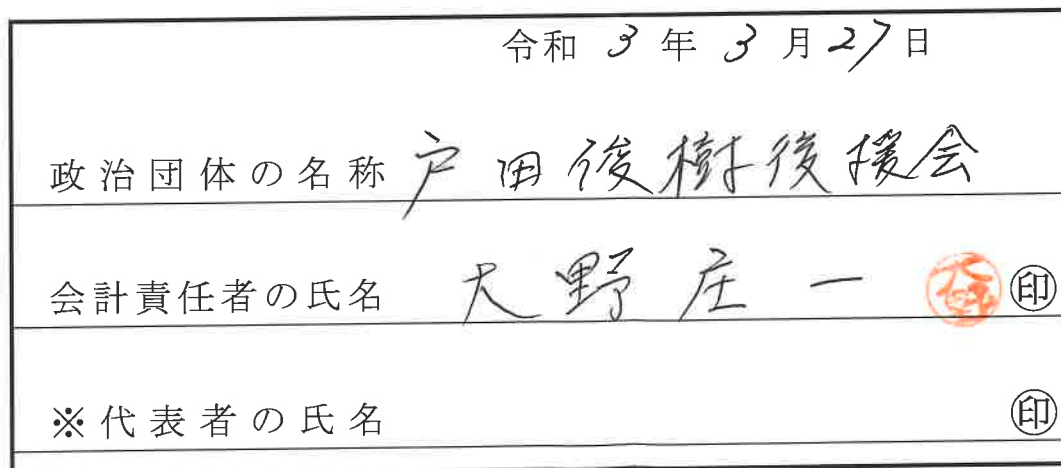 令和 3 年 3 月 27 日
政治団体の名称 戸田俊樹後援会
会計責任者の氏名 大野庄一 大野 ㊞
※代表者の氏名 ㊞